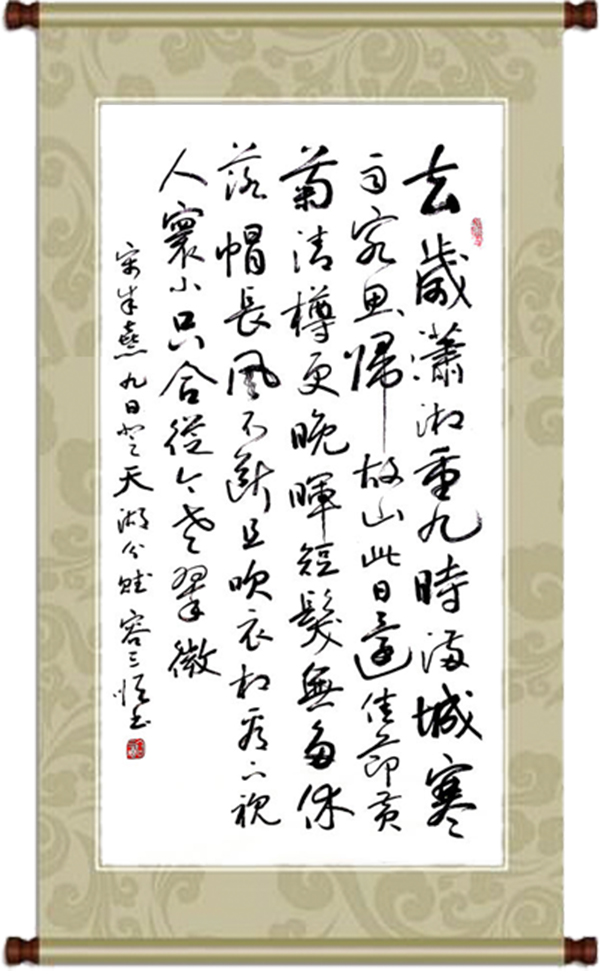 去歲瀟湘重九時滿城寒
雨客思歸故山此日還佳節黃
菊清樽更晚暉短髮無多休
落帽長風不斷且吹衣相看下視
人寰小只合從今老翠微
宋朱熹九日登天湖分賦 容三恆書